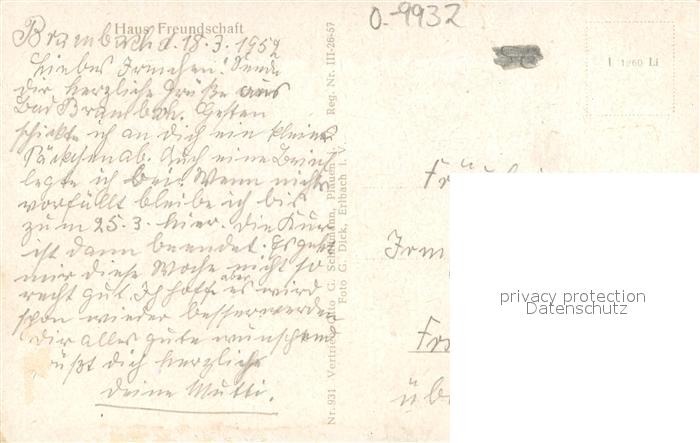 Haus Freundschaft
Brambach d. 18.3.1959
Liebes Irmchen! Sende
dir herzliche Grüße aus
Bad Brambach. Gestern
schickte ich an dich ein kleines
Päckchen ab. Auch eine Brief
legte ich bei. Wenn nichts
vorfällt bleibe ich bis
zum 25.3. hier. Die Kur
ist dann beendet. Es geht
mir diese Woche nicht so
recht gut. Ich hoffe aber es wird
schon wieder besser werden
Dir alles gute wünschend
grüßt dich herzliche
deine Mutti.
Nr. 931 Vertrieb: Otto G. Schillmann, Plauen Reg. Nr. III-26-57
Foto G. Dick, Erlbach i. V.
0-9932
L 1260 Li
Fräulein
Irm
über
privacy protection
Datenschutz